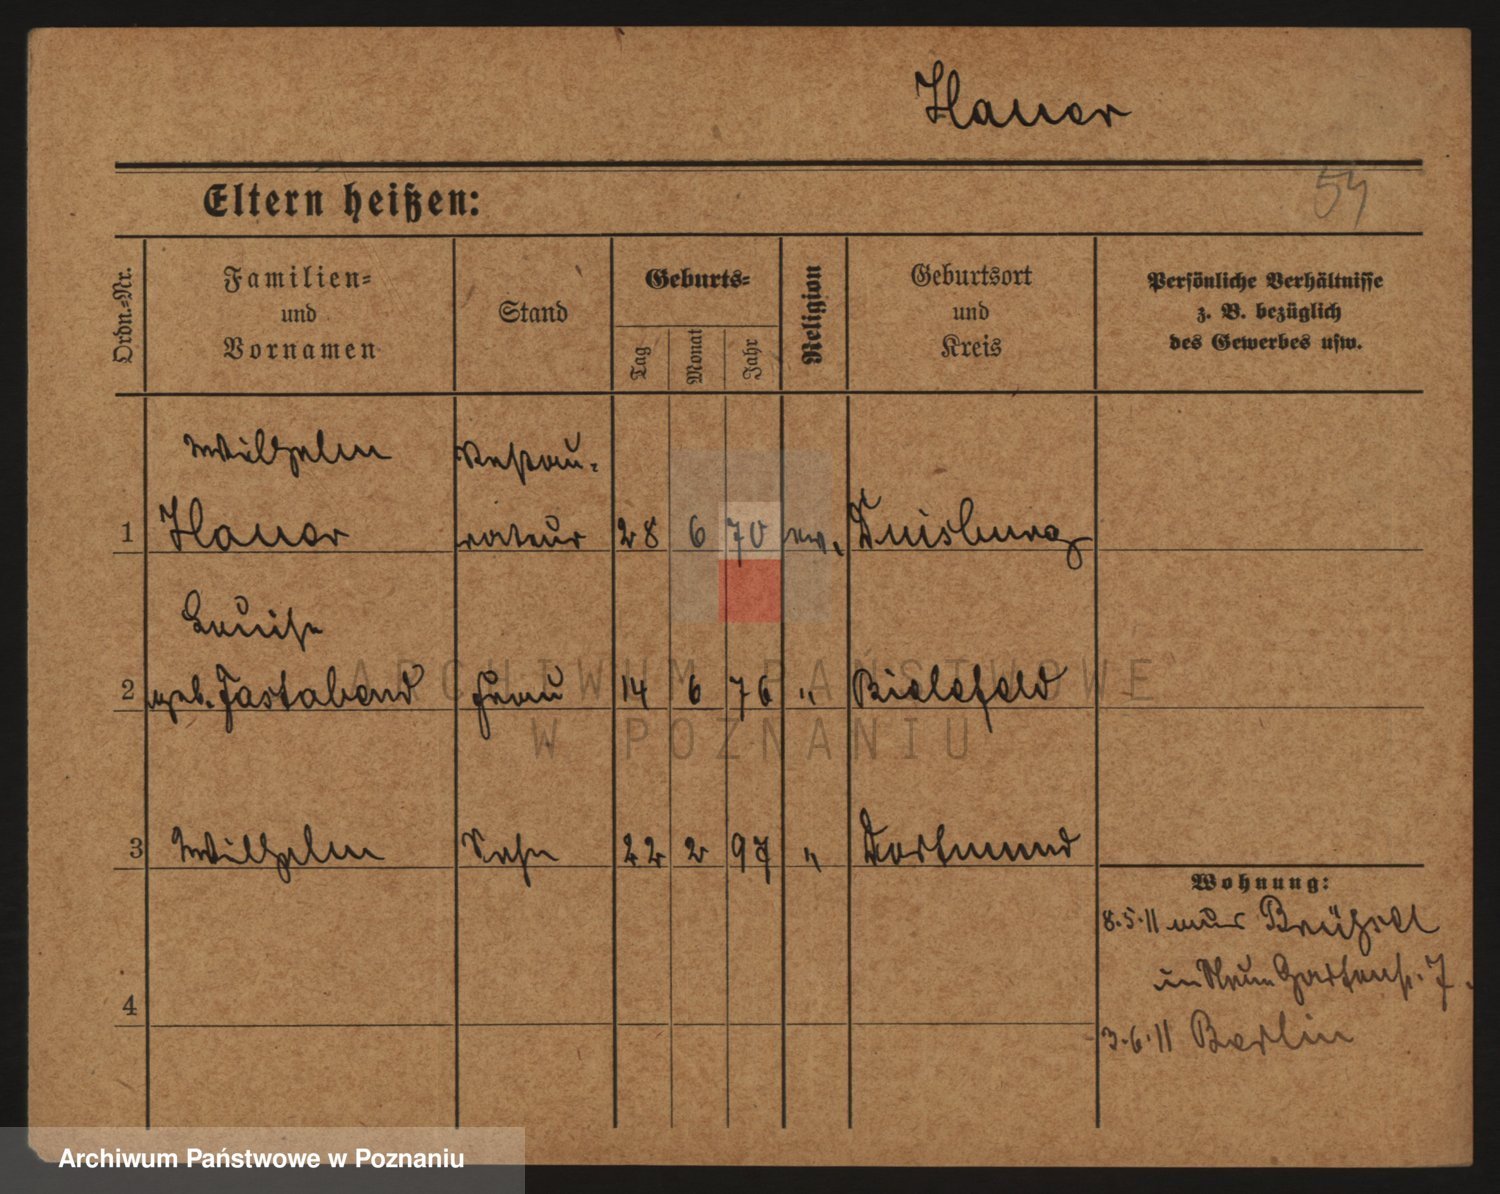 Hauer
54
Eltern heißen:
Ordn.-Nr.
Familien-
und
Vornamen
Stand
Geburts-
Tag
Monat
Jahr
Religion
Geburtsort
und
Kreis
Persönliche Verhältnisse
z. B. bezüglich
des Gewerbes usw.
Wilhelm Restau-
1 Hauer rateur 28 6 70 ev. Duisburg
Louise
2 geb. Fastabend Frau 14 6 76 " Bielefeld
3 Wilhelm Sohn 22 2 97 " Dortmund
Wohnung:
8.5.11 aus Brüssel
in Gartenstr. 7.
4
3.6.11 Berlin
ARCHIWUM PAŃSTWOWE
W POZNANIU
Archiwum Państwowe w Poznaniu